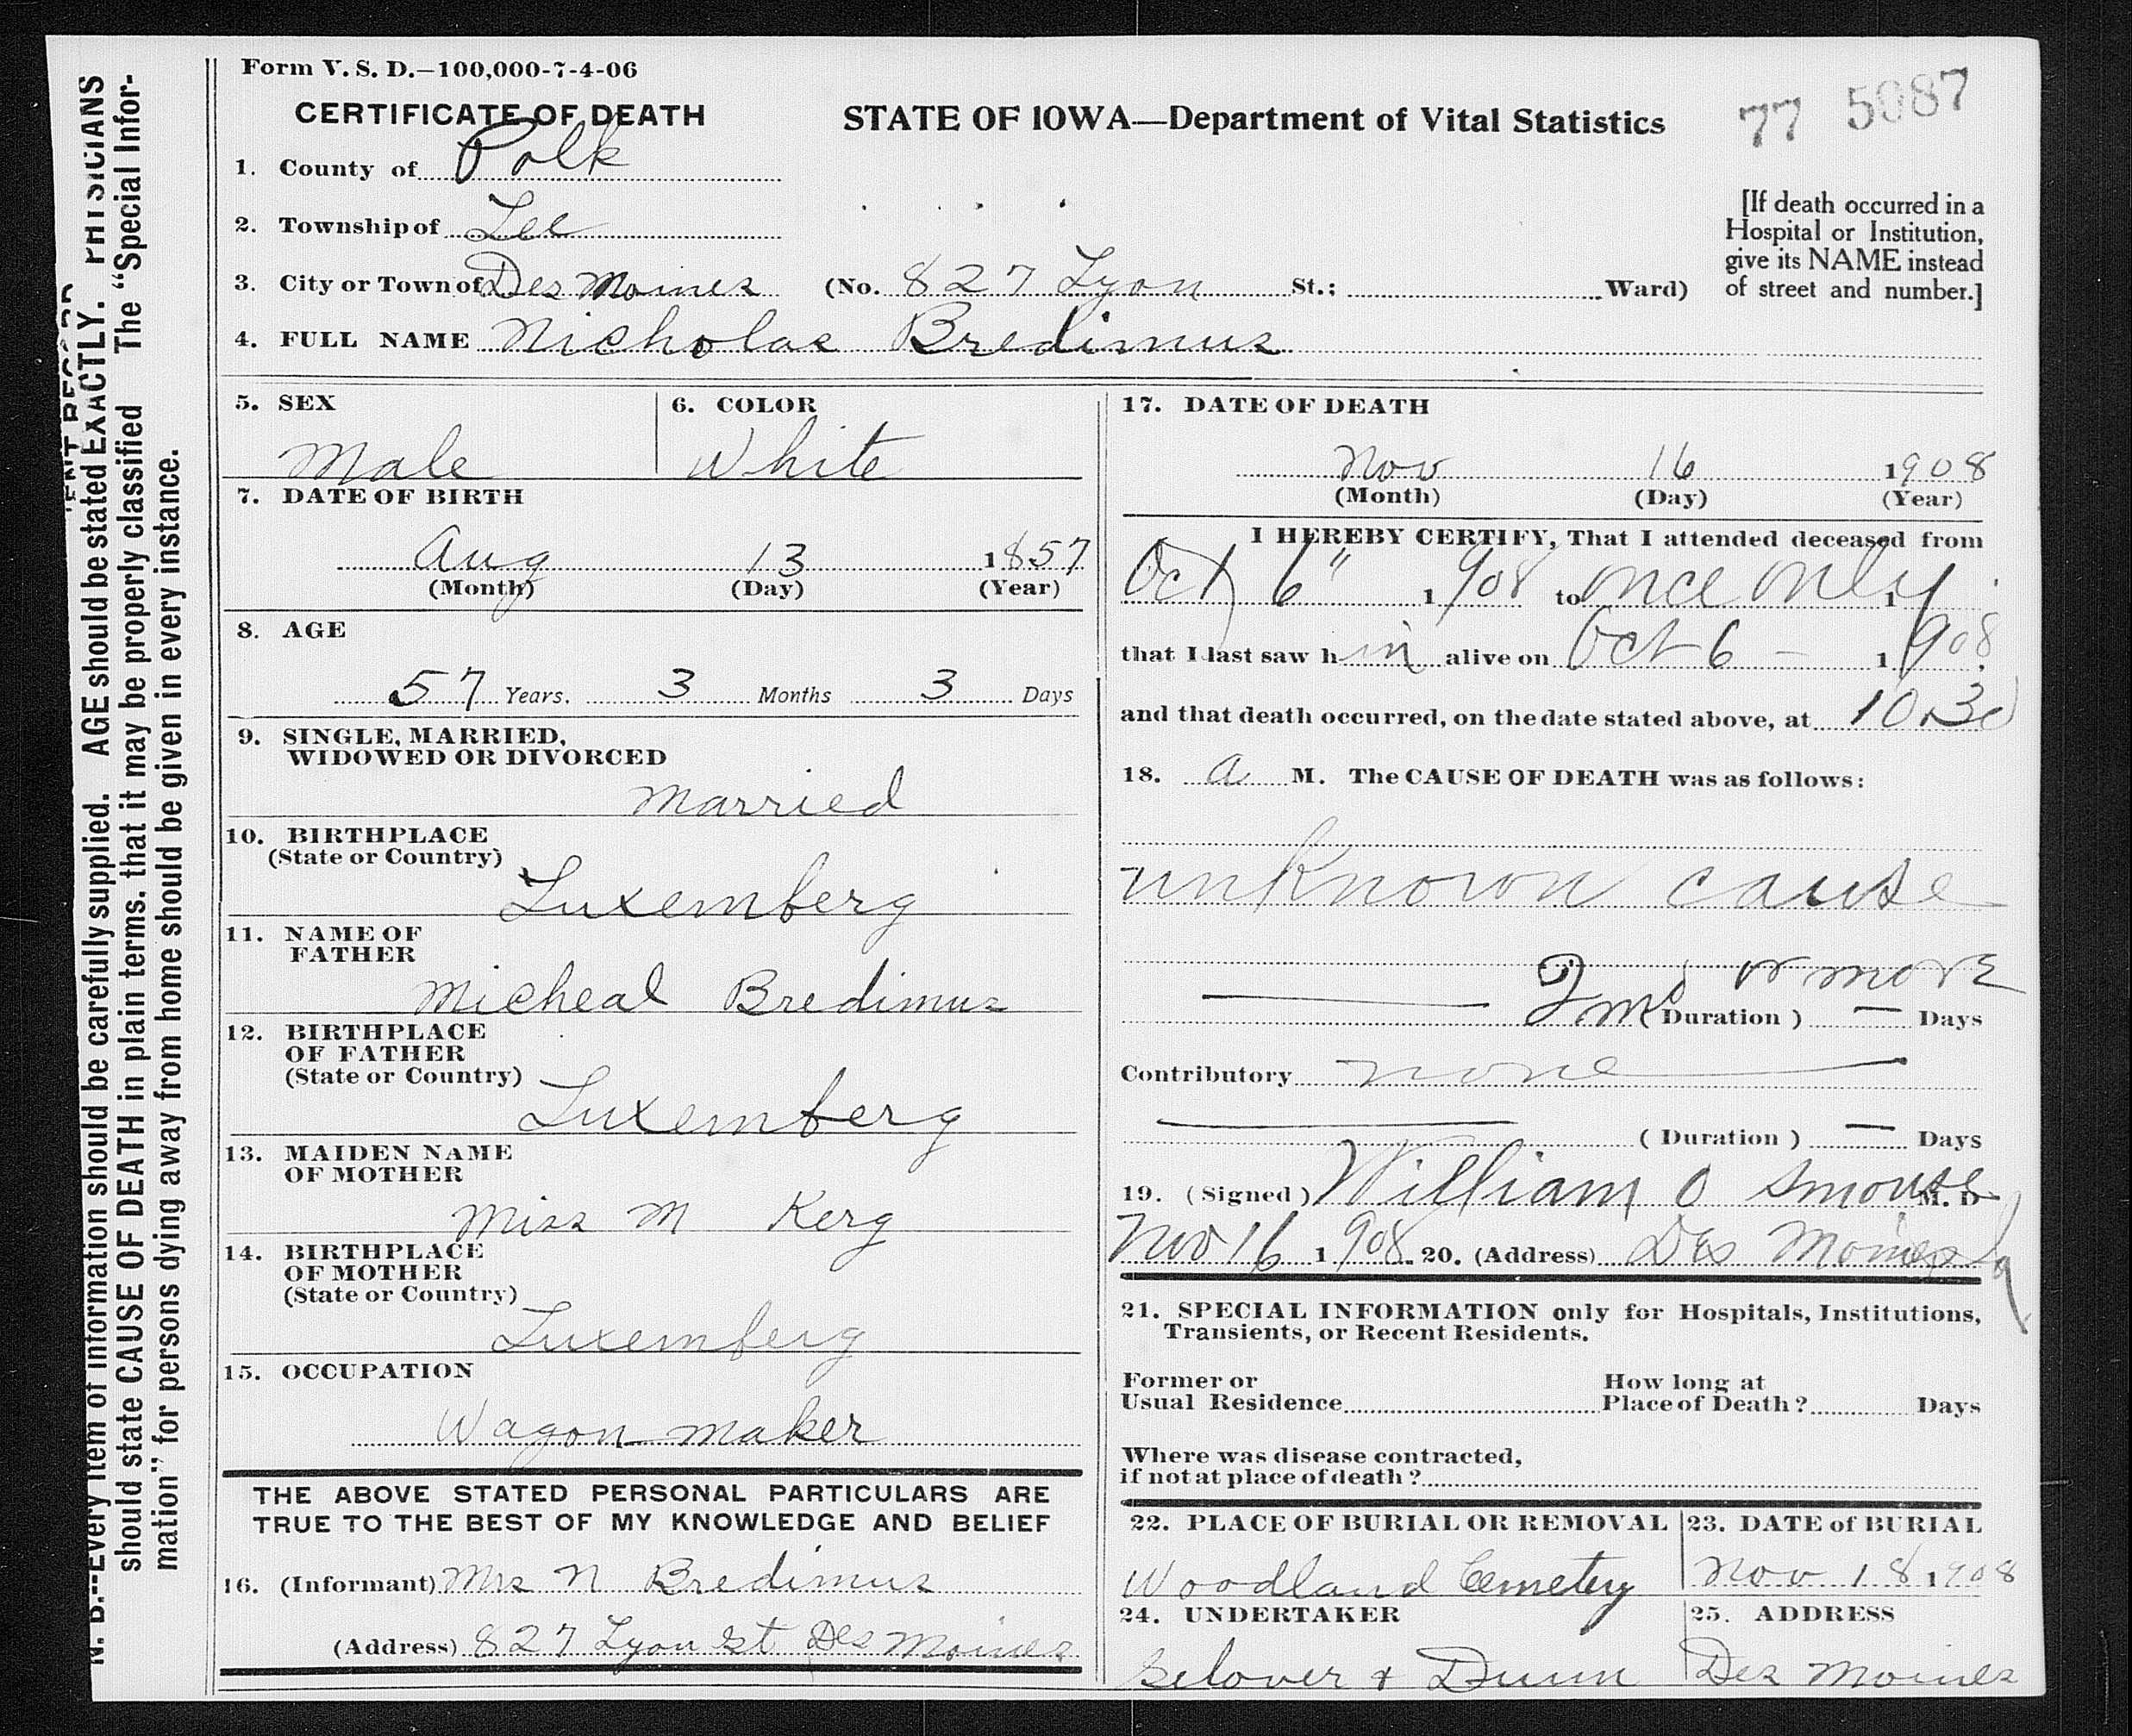 Form V. S. D.—100,000-7-4-06
77 5087
CERTIFICATE OF DEATH
STATE OF IOWA—Department of Vital Statistics
1. County of Polk
2. Township of Lee
3. City or Town of Des Moines (No. 827 Lyon St.; Ward)
[If death occurred in a
Hospital or Institution,
give its NAME instead
of street and number.]
4. FULL NAME Nicholas Bredimus
5. SEX
Male
6. COLOR
White
7. DATE OF BIRTH
Aug 13 1857
(Month) (Day) (Year)
8. AGE
57 Years. 3 Months 3 Days
9. SINGLE, MARRIED,
WIDOWED OR DIVORCED
Married
10. BIRTHPLACE
(State or Country)
Luxemberg
11. NAME OF
FATHER
Micheal Bredimus
12. BIRTHPLACE
OF FATHER
(State or Country)
Luxemberg
13. MAIDEN NAME
OF MOTHER
Miss M Kerg
14. BIRTHPLACE
OF MOTHER
(State or Country)
Luxemberg
15. OCCUPATION
Wagon maker
THE ABOVE STATED PERSONAL PARTICULARS ARE
TRUE TO THE BEST OF MY KNOWLEDGE AND BELIEF
16. (Informant) Mrs N Bredimus
(Address) 827 Lyon St Des Moines
17. DATE OF DEATH
Nov 16 1908
(Month) (Day) (Year)
I HEREBY CERTIFY, That I attended deceased from
Oct 6" 1908 to once only 1
that I last saw him alive on Oct 6 – 1908
and that death occurred, on the date stated above, at 10.30
18. a M. The CAUSE OF DEATH was as follows:
unknown cause
2 mo or more
(Duration) — Days
Contributory none
(Duration) — Days
19. (Signed) William O Smouse M. D
Nov 16 1908. 20. (Address) Des Moines Ia
21. SPECIAL INFORMATION only for Hospitals, Institutions,
Transients, or Recent Residents.
Former or
Usual Residence
How long at
Place of Death? Days
Where was disease contracted,
if not at place of death?
22. PLACE OF BURIAL OR REMOVAL
Woodland Cemetery
23. DATE of BURIAL
Nov 18 1908
24. UNDERTAKER
Selover & Dunn
25. ADDRESS
Des Moines
N. B.--Every item of information should be carefully supplied. AGE should be stated EXACTLY. PHYSICIANS
should state CAUSE OF DEATH in plain terms. that it may be properly classified The "Special Infor-
mation" for persons dying away from home should be given in every instance.